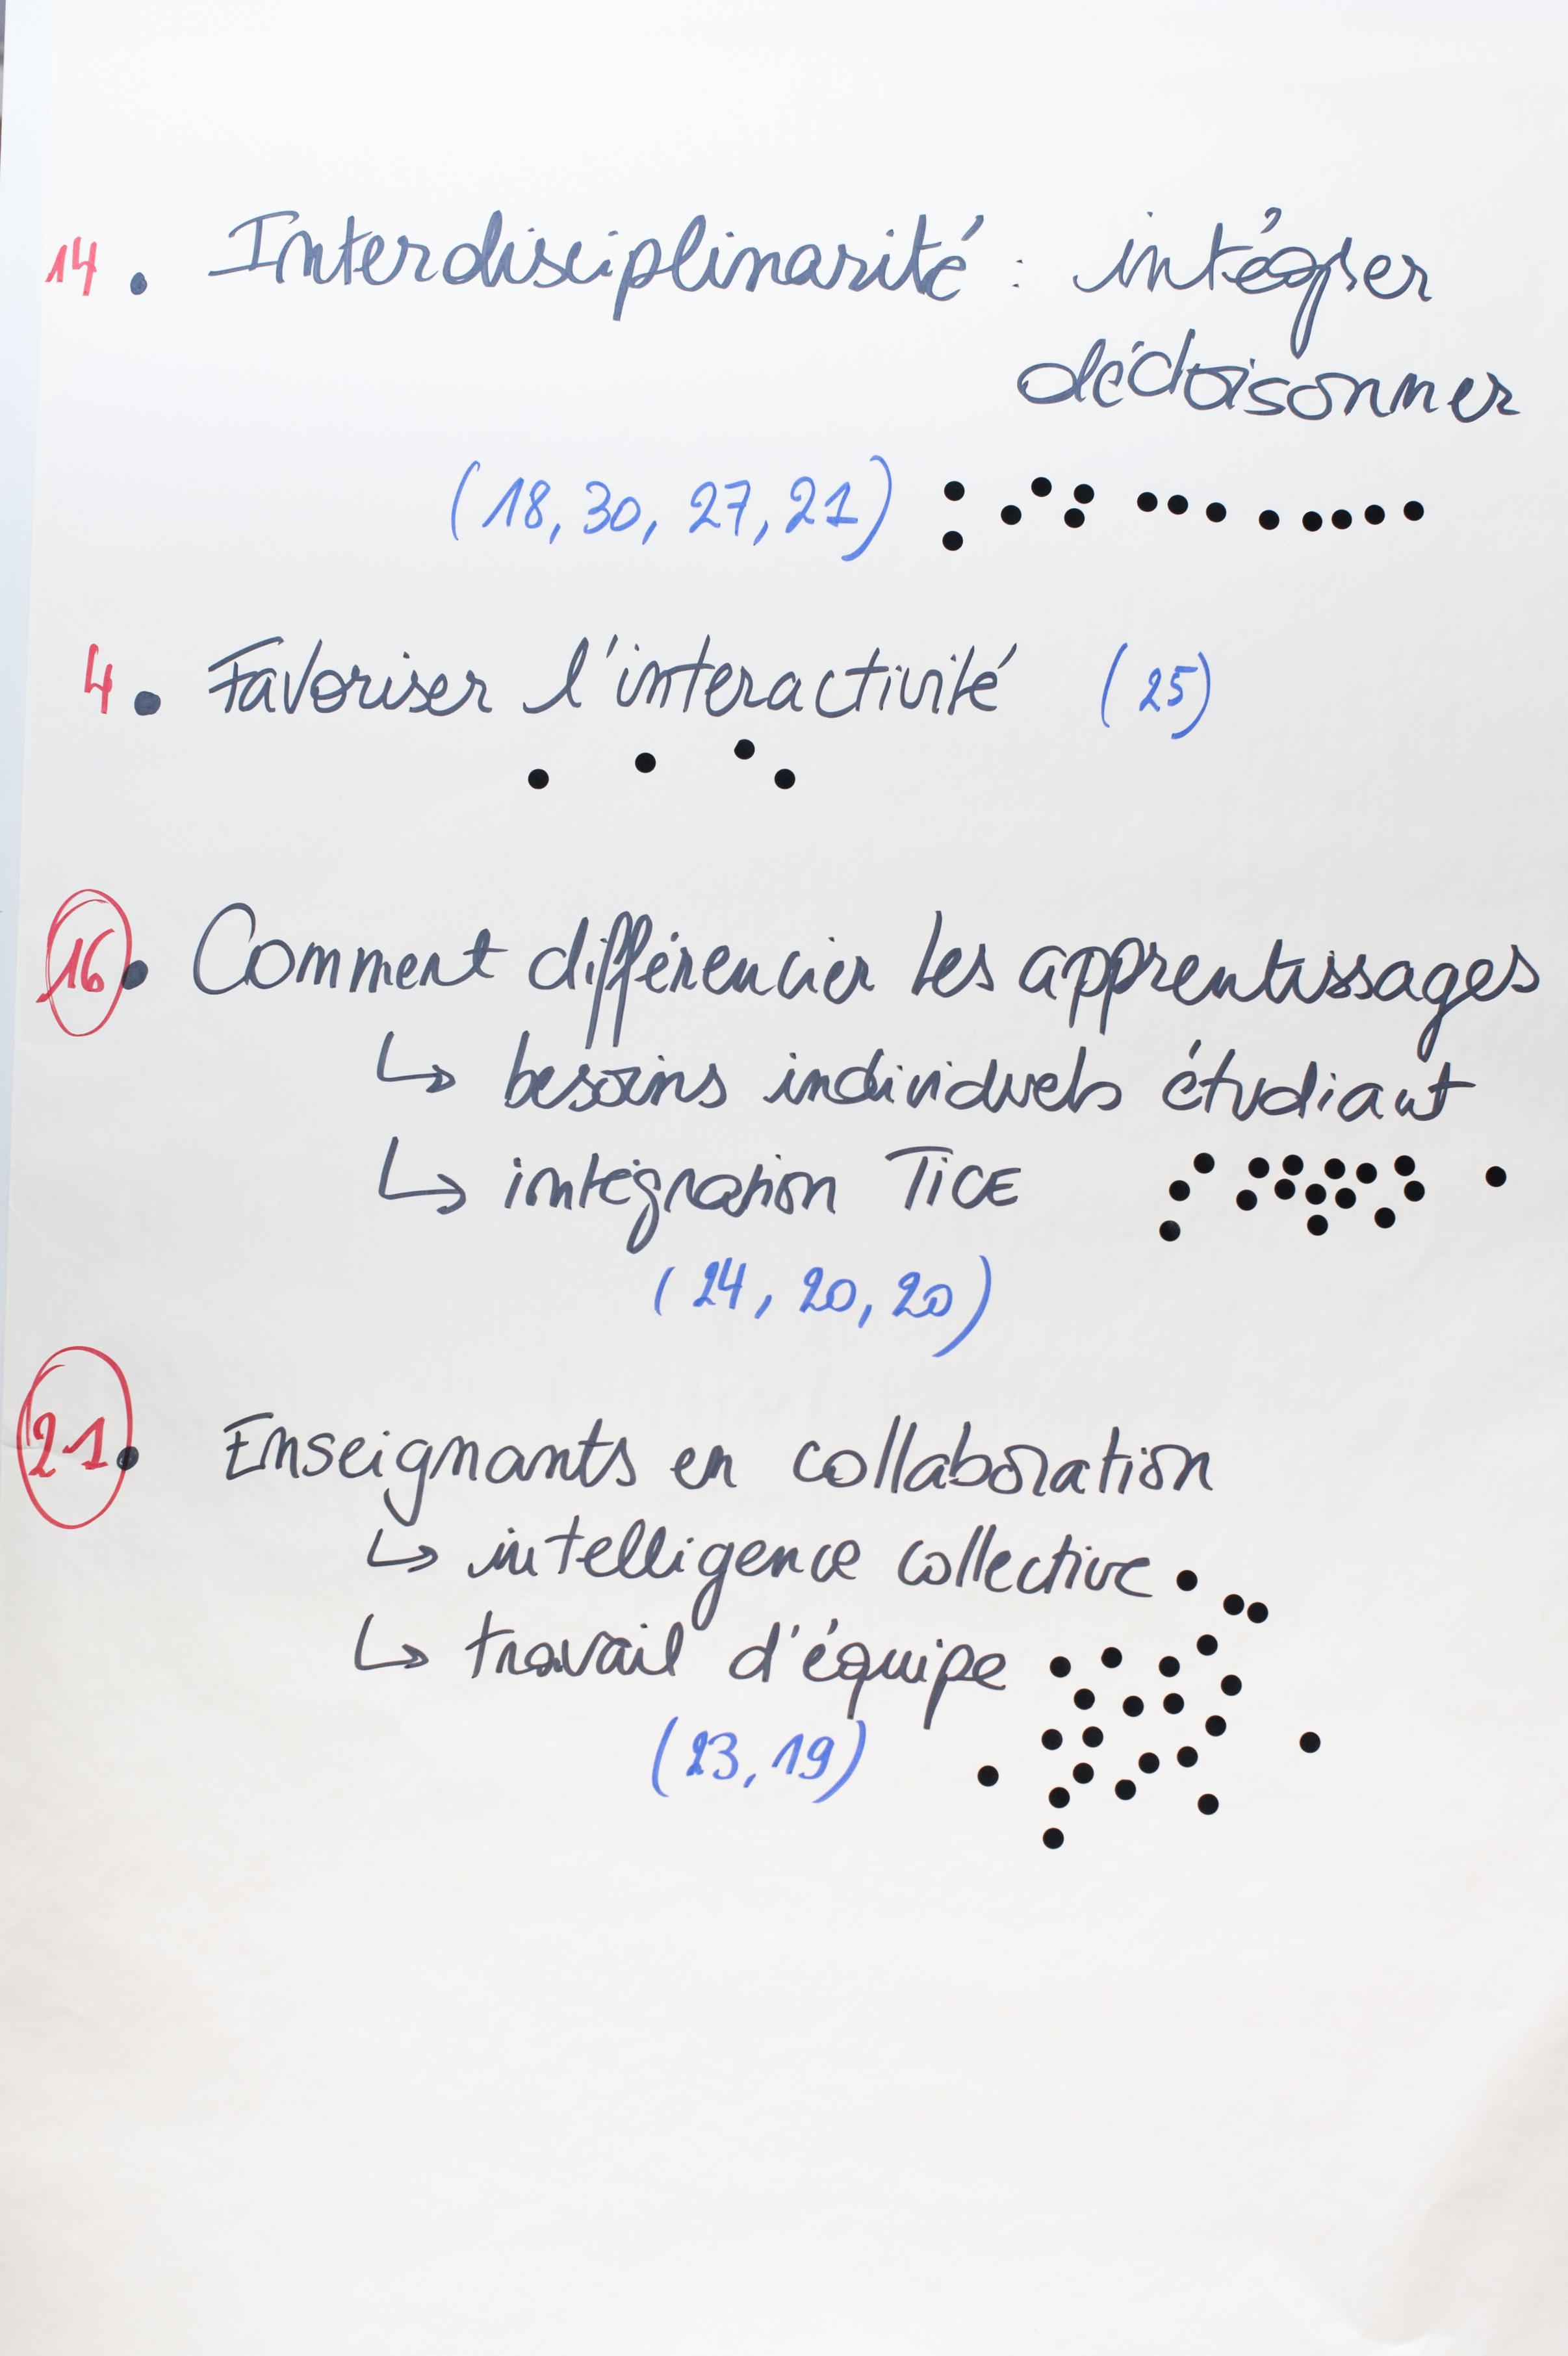 14. Interdisciplinarité : intégrer
décloisonner
(18, 30, 27, 21)
4. Favoriser l'interactivité (25)
16. Comment différencier les apprentissages
↳ besoins individuels étudiant
↳ intégration TICE
(24, 20, 20)
21. Enseignants en collaboration
↳ intelligence collective
↳ travail d'équipe
(23, 19)